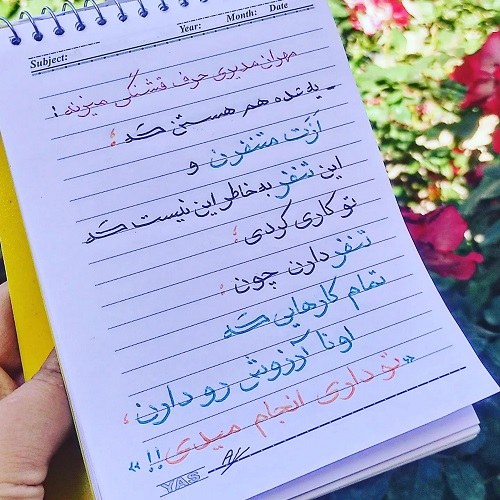 Subject: Year: Month: Date
مهران مدیری حرف قشنگی میزنه :
- یه عده هم هستن که ؛
ازت متنفرن و
این تنفر به خاطر این نیست که
تو کاری کردی ؛
تنفر دارن چون ؛
تمام کارهایی که
اونا آرزوش رو دارن ،
«تو داری انجام میدی!! »
YAS